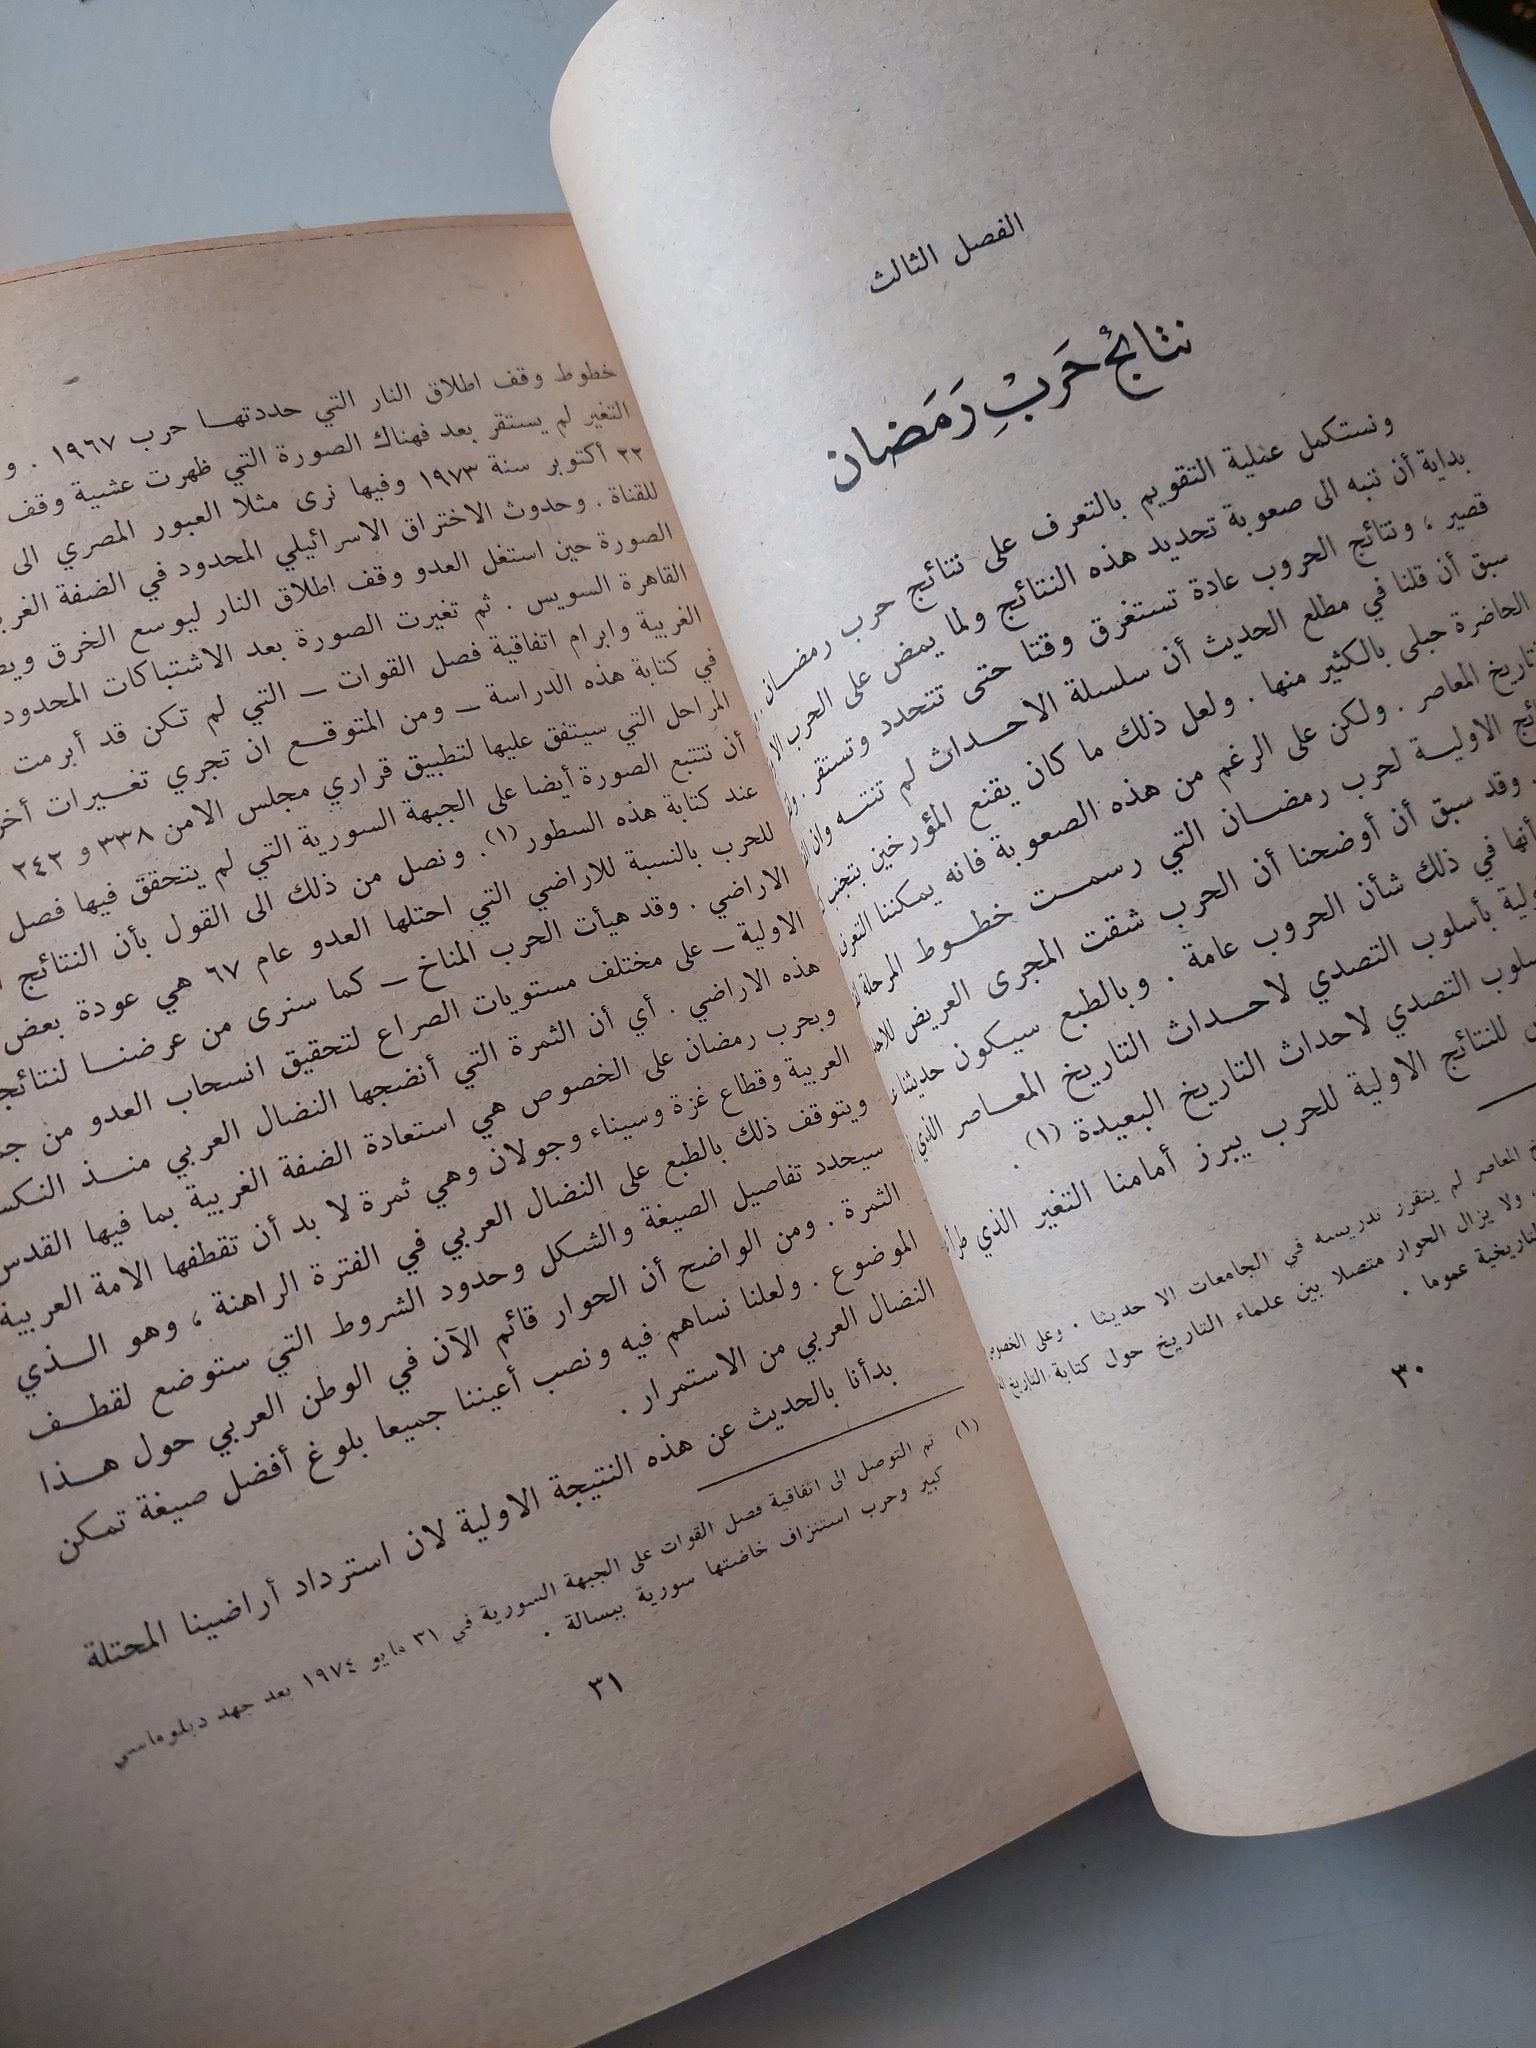 الفصل الثالث
نتائج حَربِ رَمَضان
ونستكمل عملية التقويم بالتعرف على نتائج حرب رمضان
بداية أن ننبه الى صعوبة تحديد هذه النتائج ولما يمض على الحرب
قصير ، ونتائج الحروب عادة تستغرق وقتا حتى تتحدد وتستقر .
سبق أن قلنا في مطلع الحديث أن سلسلة الاحداث لم تنته وان
الحاضرة حبلى بالكثير منها . ولعل ذلك ما كان يقنع المؤرخين بتجنب
التاريخ المعاصر . ولكن على الرغم من هذه الصعوبة فانه يمكننا
الاولية لحرب رمضان التي رسمت خطوط المرحلة
وقد سبق أن أوضحنا أن الحرب شقت المجرى العريض
أنها في ذلك شأن الحروب عامة . وبالطبع سيكون حديثنا
بأسلوب التصدي لاحداث التاريخ المعاصر الذي
التصدي لاحداث التاريخ البعيدة (١) .
للنتائج الاولية للحرب يبرز أمامنا التغير الذي
المعاصر لم يتقرر تدريسه في الجامعات الا حديثا . وعلى الخصوص
ولا يزال الحوار متصلا بين علماء التاريخ حول كتابة التاريخ
التاريخية عموما .
٣٠
خطوط وقف اطلاق النار التي حددتها حرب ١٩٦٧ .
التغير لم يستقر بعد فهناك الصورة التي ظهرت عشية وقف
٢٢ أكتوبر سنة ١٩٧٣ وفيها نرى مثلا العبور المصري الى
للقناة . وحدوث الاختراق الاسرائيلي المحدود في الضفة
الصورة حين استغل العدو وقف اطلاق النار ليوسع الخرق
القاهرة السويس . ثم تغيرت الصورة بعد الاشتباكات
الغربية وابرام اتفاقية فصل القوات ـ التي لم تكن قد أبرمت
في كتابة هذه الدراسة ـ ومن المتوقع ان تجري تغييرات
المراحل التي سيتفق عليها لتطبيق قراري مجلس الامن ٣٣٨ و ٢٤٢
أن نتتبع الصورة أيضا على الجبهة السورية التي لم يتحقق فيها فصل
عند كتابة هذه السطور (١) . ونصل من ذلك الى القول بأن النتائج
للحرب بالنسبة للاراضي التي احتلها العدو عام ٦٧ هي عودة بعض
الاراضي . وقد هيأت الحرب المناخ ـ كما سنرى من عرضنا
الاولية ـ على مختلف مستويات الصراع لتحقيق انسحاب العدو من
هذه الاراضي . أي أن الثمرة التي أنضجها النضال العربي منذ
وبحرب رمضان على الخصوص هي استعادة الضفة الغربية بما فيها القدس
العربية وقطاع غزة وسيناء وجولان وهي ثمرة لا بد أن تقطفها الامة العربية
ويتوقف ذلك بالطبع على النضال العربي في الفترة الراهنة ، وهو الذي
سيحدد تفاصيل الصيغة والشكل وحدود الشروط التي ستوضع لقطف
الثمرة . ومن الواضح أن الحوار قائم الآن في الوطن العربي حول هذا
الموضوع . ولعلنا نساهم فيه ونصب أعيننا جميعا بلوغ أفضل صيغة تمكن
النضال العربي من الاستمرار .
بدأنا بالحديث عن هذه النتيجة الاولية لان استرداد أراضينا المحتلة
(١) تم التوصل الى اتفاقية فصل القوات على الجبهة السورية في ٣١ مايو ١٩٧٤ بعد جهد دبلوماسي
كبير وحرب استنزاف خاضتها سورية ببسالة .
٣١